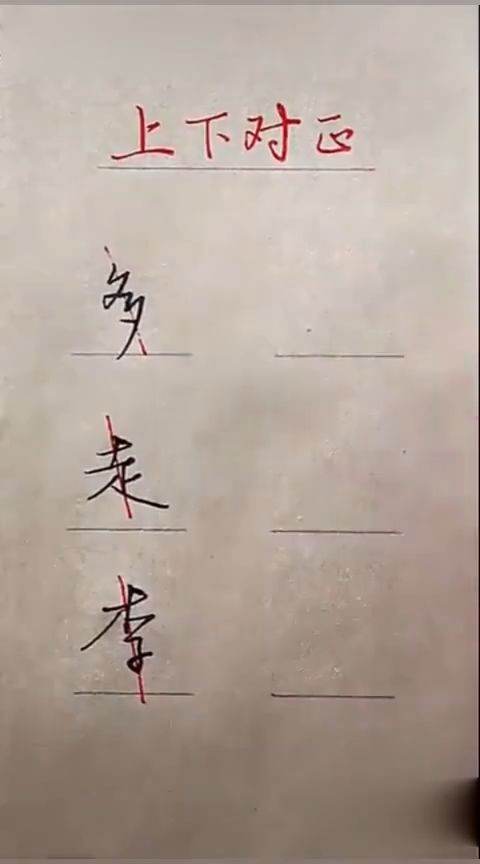 上下对正
多
走
李